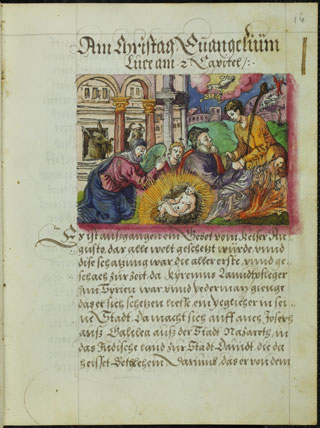 16
Am Christag Euangelium
Luce am 2 Capitel /:
Es ist ausgangen ein Gebot vom Keiser Au
gusto dar alle welt geschetzt würde vnnd
dise schatzung war die aller erste, vnnd ge
schach zür zeit da Kyrenius Lanndtpfleger
jnn Syrien war vnnd yederman gienge
das er sich schetzen liesse ein yeglicher in sei
ne Stadt. Da macht sich auff auch Joseph
auß Galilea auß der Stadt Nasareth, in
das Jüdische Land zür Stadt Dauidt, die da
heisset Bethlehem Darumb, das er von dem